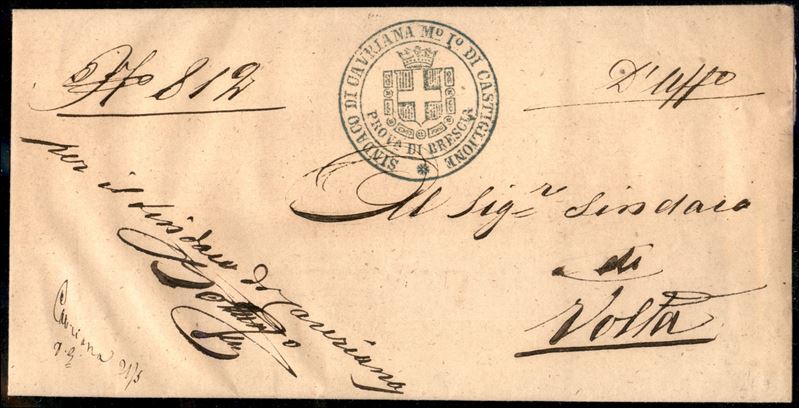 N° 812
SINDACO DI CAVRIANA Mº Iº DI CASTIGLIONE
PROVA DI BRESCIA
D'Uffº
Al Sigr Sindaco
di
Volta
per il Sindaco di Cavriana
Cavriana 21/5